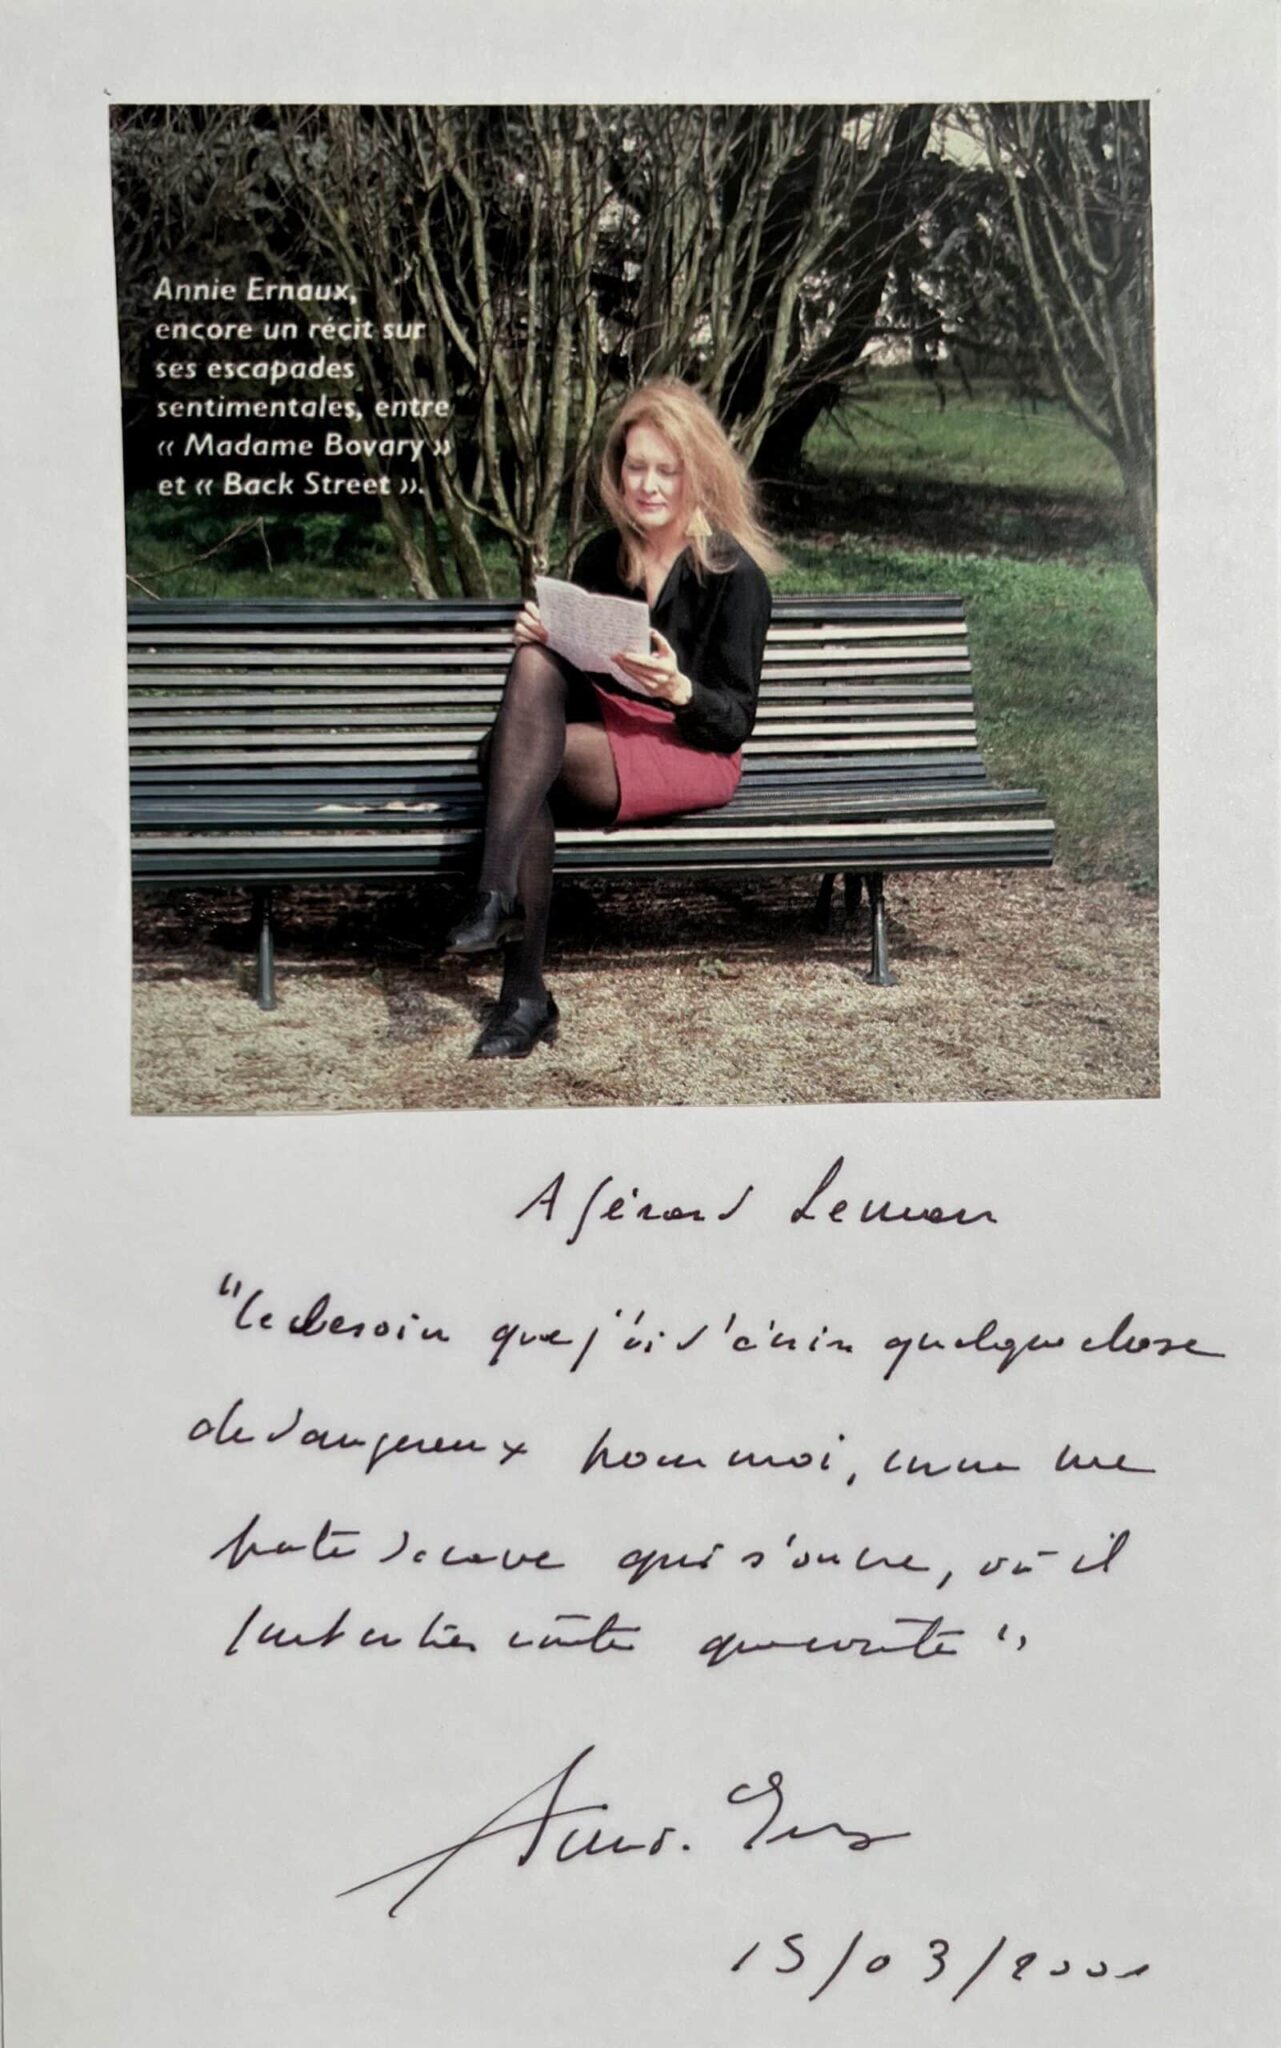 Annie Ernaux,
encore un récit sur
ses escapades
sentimentales, entre
« Madame Bovary »
et « Back Street ».
A Gérard
"Le besoin que j'ai d'écrire quelque chose
de dangereux pour moi, comme une
porte de cave qui s'ouvre, où il
faut entrer coûte que coûte"
Annie Ernaux
15/03/2001